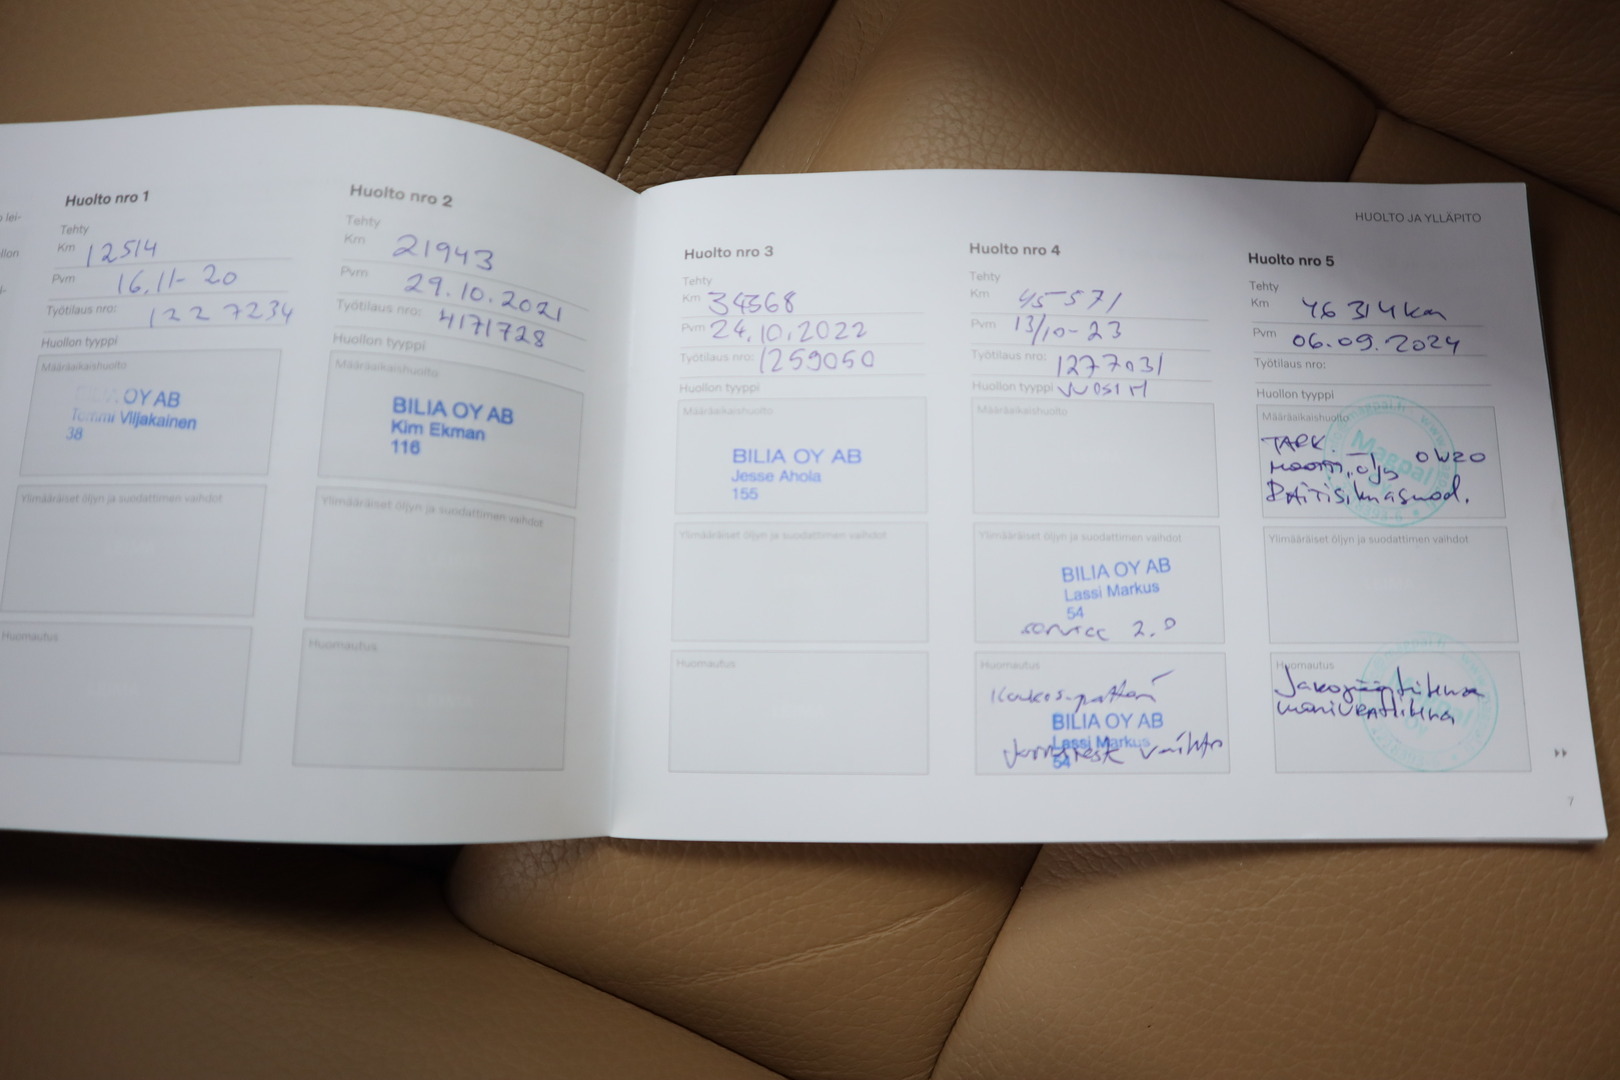 HUOLTO JA YLLÄPITO
Huolto nro 1
Tehty
Km 12514
Pvm 16.11-20
Työtilaus nro: 122 7234
Huollon tyyppi
Määräaikaishuolto
OY AB
Tommi Viljakainen
38
Ylimääräiset öljyn ja suodattimen vaihdot
Huomautus
Huolto nro 2
Tehty
Km 21943
Pvm 29.10.2021
Työtilaus nro: 4171728
Huollon tyyppi
Määräaikaishuolto
BILIA OY AB
Kim Ekman
116
Ylimääräiset öljyn ja suodattimen vaihdot
Huomautus
Huolto nro 3
Tehty
Km 34368
Pvm 24.10.2022
Työtilaus nro: 1259050
Huollon tyyppi
Määräaikaishuolto
BILIA OY AB
Jesse Ahola
155
Ylimääräiset öljyn ja suodattimen vaihdot
Huomautus
Huolto nro 4
Tehty
Km 45-571
Pvm 13/10-23
Työtilaus nro: 1277031
Huollon tyyppi VUOSIH
Määräaikaishuolto
Ylimääräiset öljyn ja suodattimen vaihdot
BILIA OY AB
Lassi Markus
54
service 2.0
Huomautus
BILIA OY AB
Lassi Markus
54
vaihto
Huolto nro 5
Tehty
Km 46 314 km
Pvm 06.09.2024
Työtilaus nro:
Huollon tyyppi
Määräaikaishuolto
Magpal
TARK.
moott.öljy 0W20
RAITISilmasuod.
Ylimääräiset öljyn ja suodattimen vaihdot
Huomautus
7